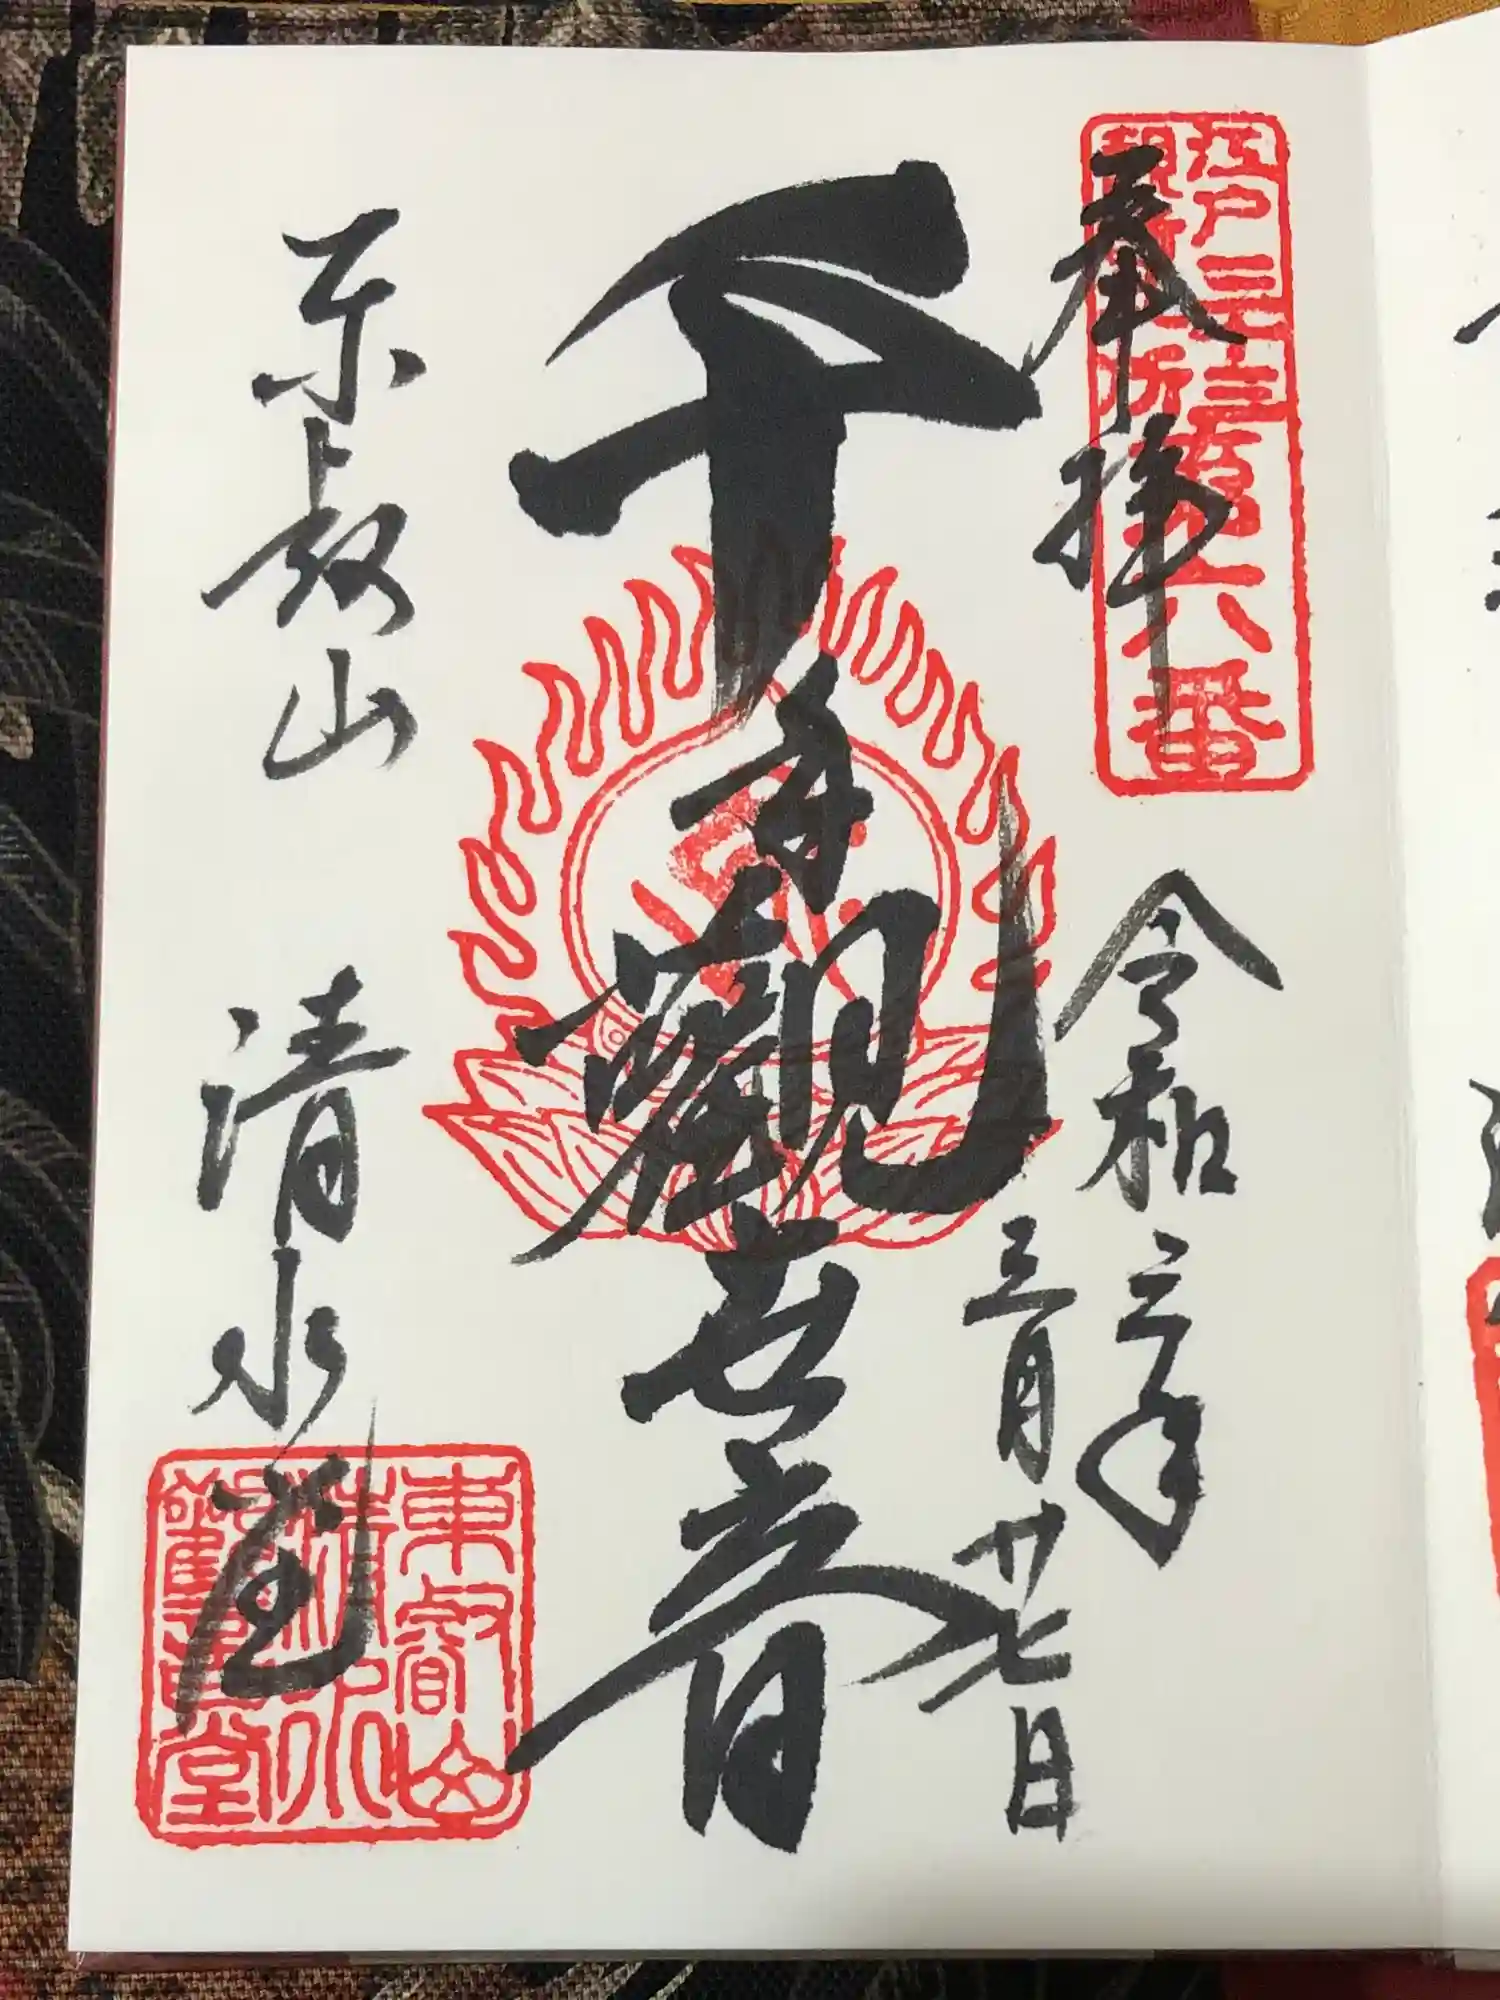 奉拝
江戸三十三
観音札所
第六番
令和三年
三月廿七日
千手觀世音
東叡山 清水堂
東叡山
清水
觀音堂